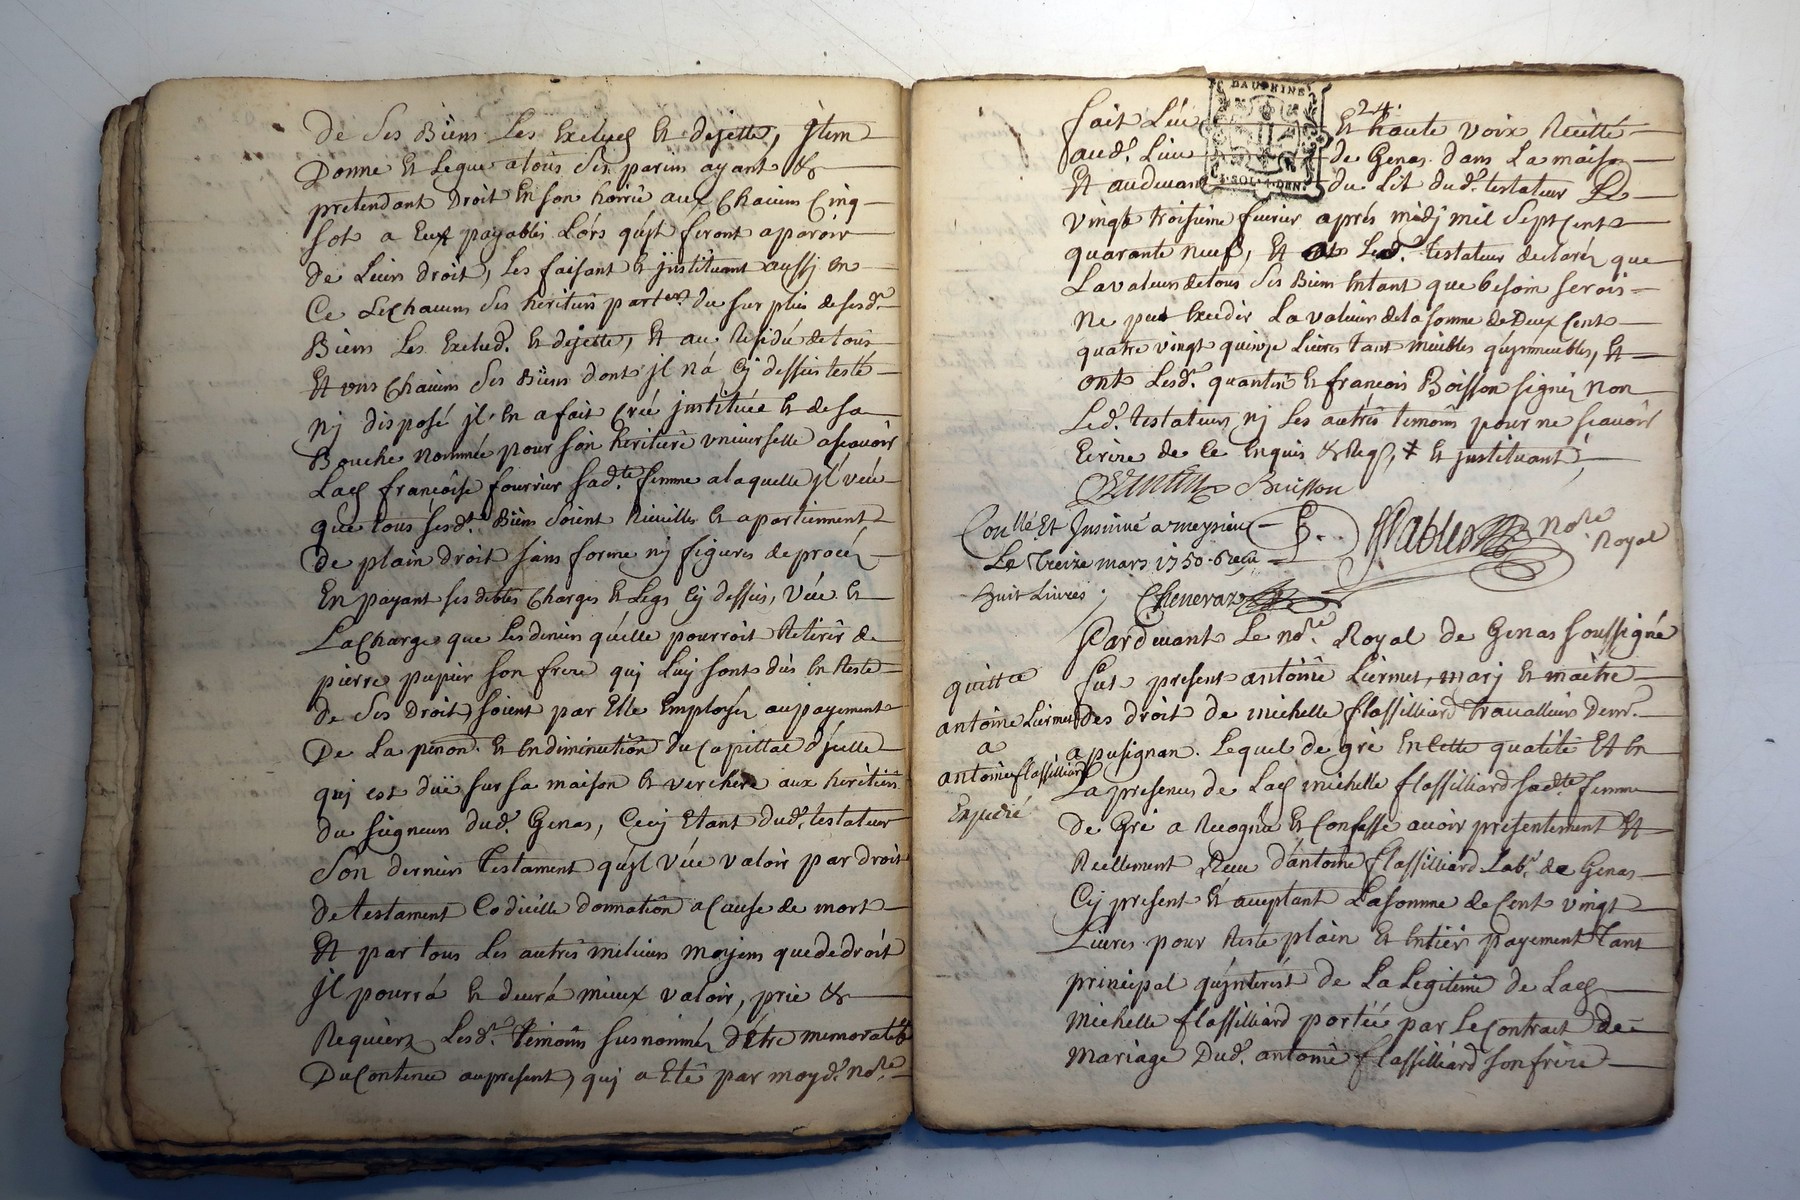 De Ses Biens Les Exclud Et dejette, Jtem
Donne Et Legue atous Ses parens ayant &
pretendant Droit En son hoirie aux Chacuns Cinq
Sol a Eux payables Lors qu'jls seront aparoir
de Leurs droit, Les faisant Et jnstituant aussj en
Ce Les Chacuns Ses heritiers parters. du sur plus de sesd.
Biens Les Exclud. Et dejette, Et au Residu de tous
Et uns Chacuns Ses Biens dont jl n'á Cy dessus testé
nj disposé jl en a fait Creé jnstituée Et de sa
Bouche nommée pour son heritiere universelle ascavoir
Lad francoise fourrier sad.te femme a laquelle jl véut
que tous sesd.t Biens Soient Recuilles Et apartiennent
de plain droit sans forme nj figures de procés
En payant ses debtes Charges Et Legs Cy dessus, Véut Et
La Charge que Les deniers qu'elle pourroit Retirer de
pierre pupier Son frere quj Luy sont dus En Reste
de Ses Droit, soient par Elle Employés au payement
De La penon. Et En diminution du Capittal d'jcelle
quj est duë sur sa maison Et verchere aux heritiers
du seigneur dud. Genas, Cecy Etant dud. testateur
Son dernier Testament qu'jl véut valoir par droit
de testament Codicille donnation a Cause de mort
Et par tous Les autres melieurs moyens que de droit
jl pourrá Et deurá mieux valoir, prie &
Requiert Lesd. temoins susnommés d'être memoratifs
Du Contenu au present, quj a Eté par moyd. no.re
24
fait Lu Et haute voix Recitté
aud. Lieu de Genas dans La maison
Et audevant du Lit dud. testateur Le
Vingt troisieme fevrier aprés midj mil Sept Cent
quarante neuf, Et Led. testateur declaré que
La valeur de tous Ses Biens Entant que besoin seroit
ne peut Exceder La valeur de la somme de Deux Cent
quatre vingt quinze Livres tant meubles qu'jmmeubles, Et
ont Lesd. quantin Et francois Boisson signéz non
Led. testateur nj Les autres temoins pour ne scavoir
Ecrire de Ce Enquis & Req, ǂ Et jnstituant,
Quantin Buisson
Conllé Et Jnsinué a meysieu
Le Treize mars 1750. Recu
huit Livres; Chenevaz
Sables no.re Royal
Pardevant Le no.re Royal de Genas soussigné
fut present antoine Liermet, marj Et maitre
des droit de michelle flassilliard travailleur Demr.
a pusignan. Lequel de gré En Cette qualité Et En
La presence de Lad michelle flassilliard sad.te femme
De Gré a Recognu Et Confessé avoir presentement Et
Reellement Receu d'antoine flassilliard Lab.r de Genas
Cy present Et acceptant La somme de Cent vingt
Livres pour Reste plain Et Entier payement tant
principal qu'jnterest de La Legitime de Lad
Michelle flassilliard portée par Le Contract de
mariage Dud. antoine flassilliard son frere
quittce
antoine Liermet
a
antoine flassilliard
Expedié
DAUPHINE
SOL
DEN.